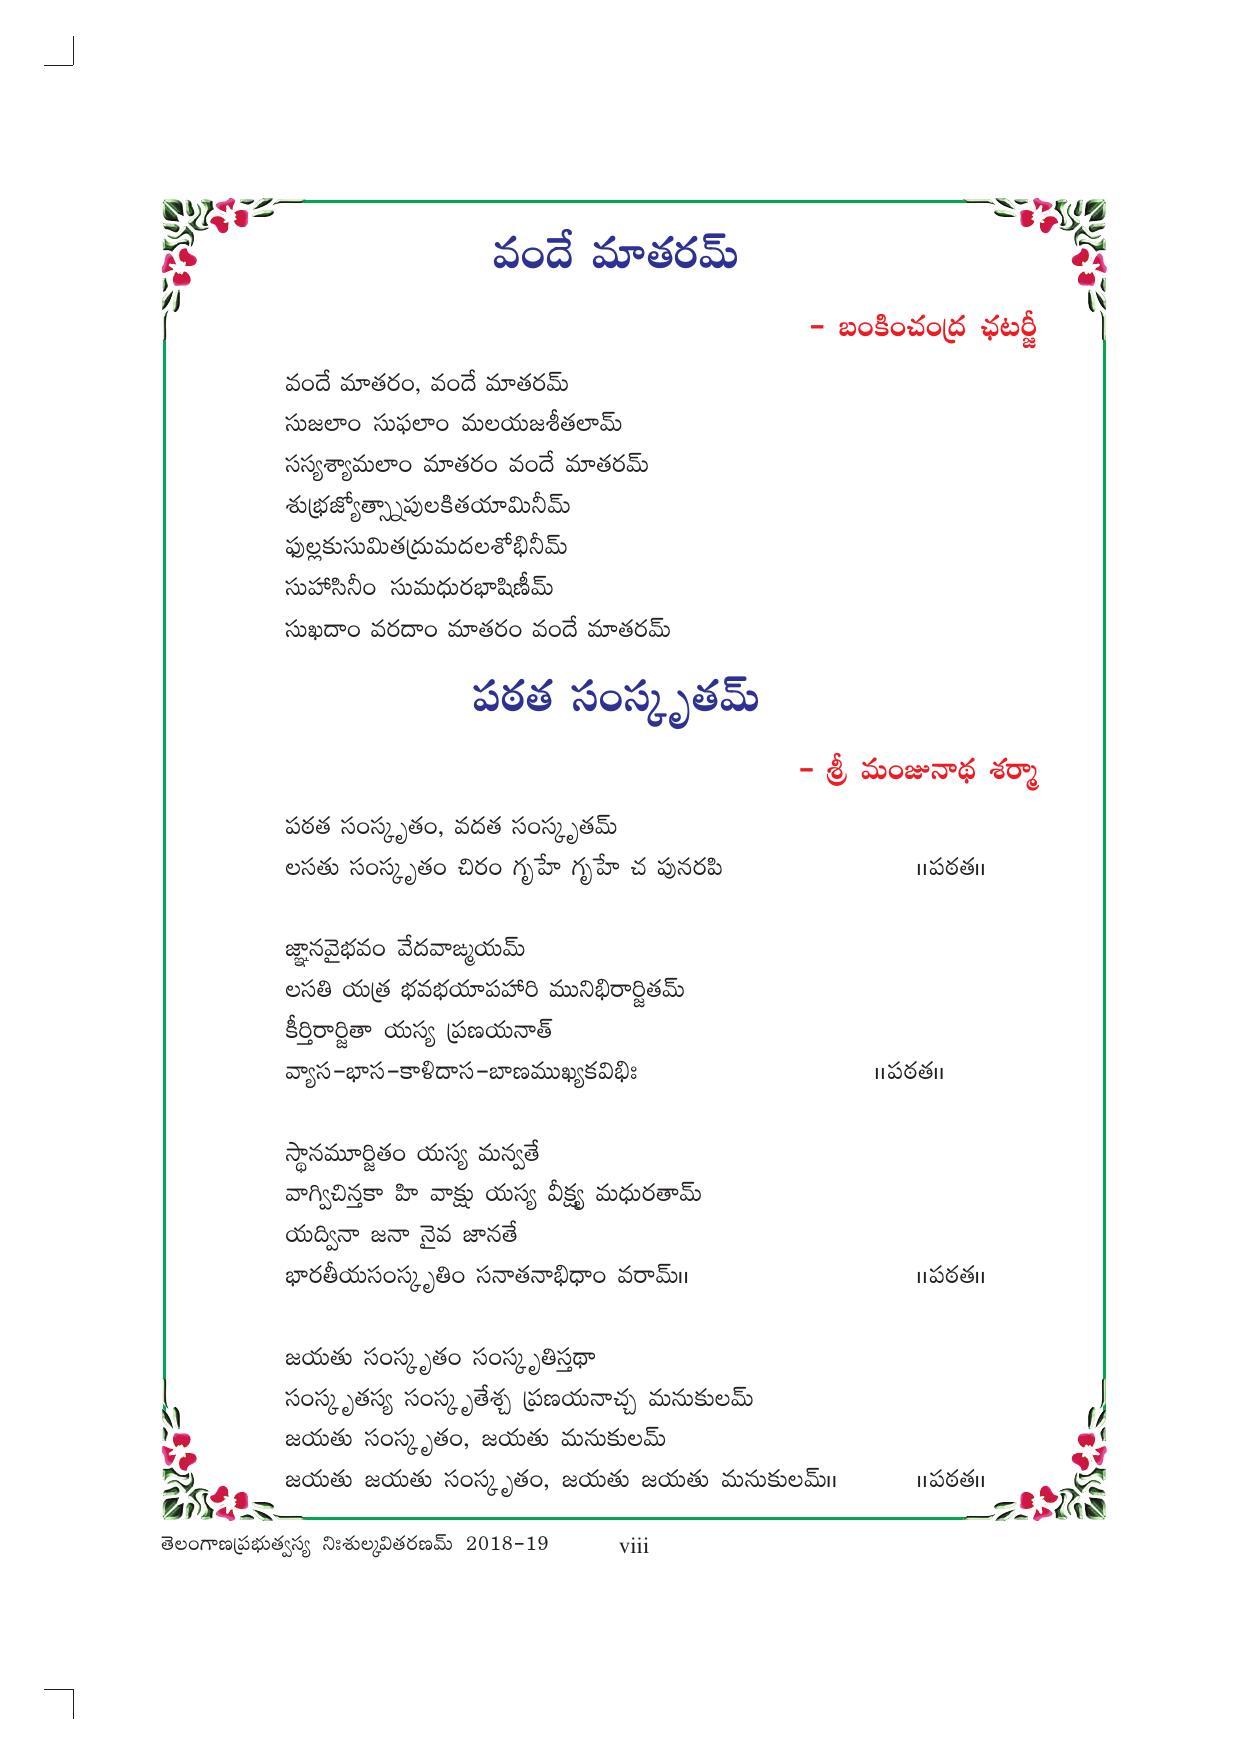 వందే మాతరమ్
- బంకించంద్ర ఛటర్జీ
వందే మాతరం, వందే మాతరమ్
సుజలాం సుఫలాం మలయజశీతలామ్
సస్యశ్యామలాం మాతరం వందే మాతరమ్
శుభ్రజ్యోత్స్నాపులకితయామినీమ్
ఫుల్లకుసుమితద్రుమదలశోభినీమ్
సుహాసినీం సుమధురభాషిణీమ్
సుఖదాం వరదాం మాతరం వందే మాతరమ్
పఠత సంస్కృతమ్
- శ్రీ మంజునాథ శర్మా
పఠత సంస్కృతం, వదత సంస్కృతమ్
లసతు సంస్కృతం చిరం గృహే గృహే చ పునరపి ॥పఠత॥
జ్ఞానవైభవం వేదవాఙ్మయమ్
లసతి యత్ర భవభయాపహారి మునిభిరార్జితమ్
కీర్తిరార్జితా యస్య ప్రణయనాత్
వ్యాస-భాస-కాళిదాస-బాణముఖ్యకవిభిః ॥పఠత॥
స్థానమూర్జితం యస్య మన్వతే
వాగ్విచిన్తకా హి వాక్షు యస్య వీక్ష్య మధురతామ్
యద్వినా జనా నైవ జానతే
భారతీయసంస్కృతిం సనాతనాభిధాం వరామ్॥ ॥పఠత॥
జయతు సంస్కృతం సంస్కృతిస్తథా
సంస్కృతస్య సంస్కృతేశ్చ ప్రణయనాచ్చ మనుకులమ్
జయతు సంస్కృతం, జయతు మనుకులమ్
జయతు జయతు సంస్కృతం, జయతు జయతు మనుకులమ్॥ ॥పఠత॥
తెలంగాణప్రభుత్వస్య నిఃశుల్కవితరణమ్ 2018-19 viii